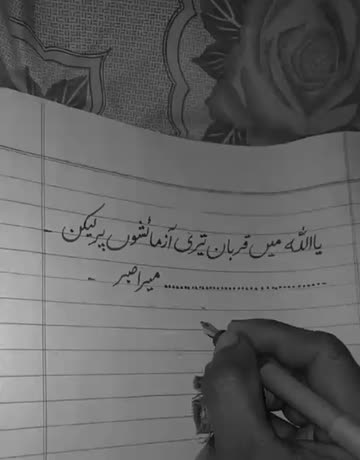 یا اللہ میں قربان تیری آزمائشوں پر لیکن -
........................................ میرا صبر -